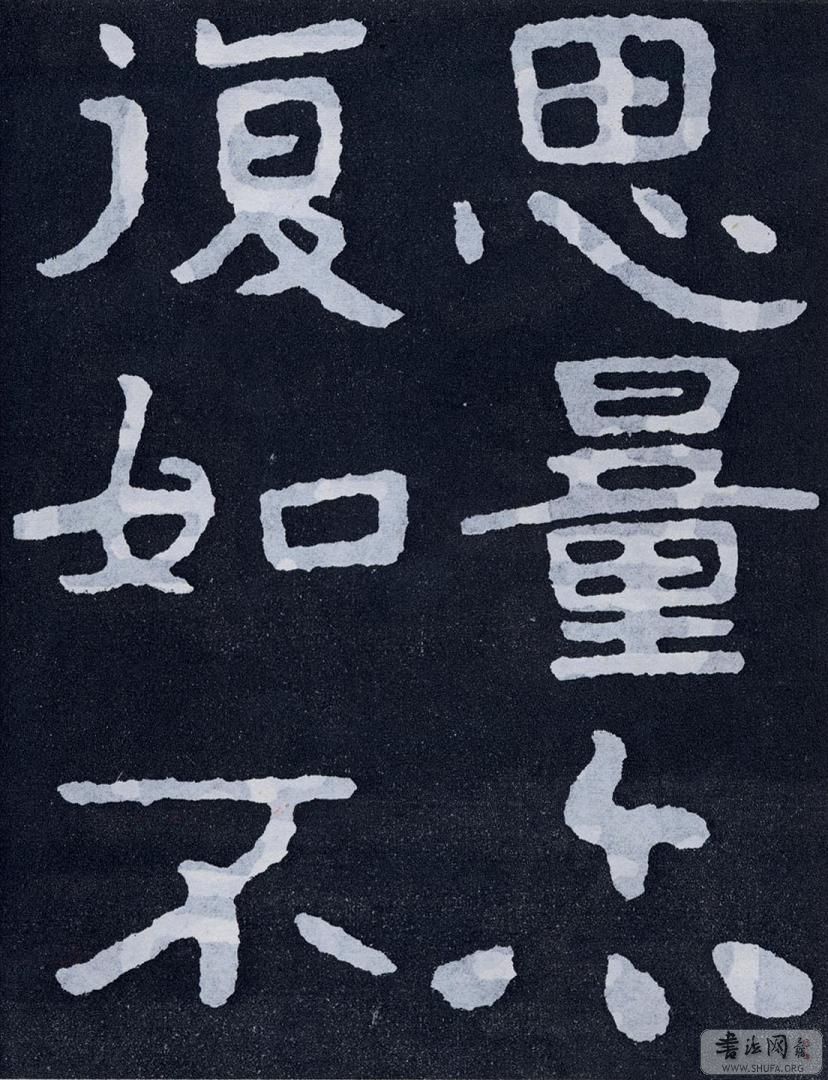 思量亦
復如不
書法网
WWW.SHUFA.ORG